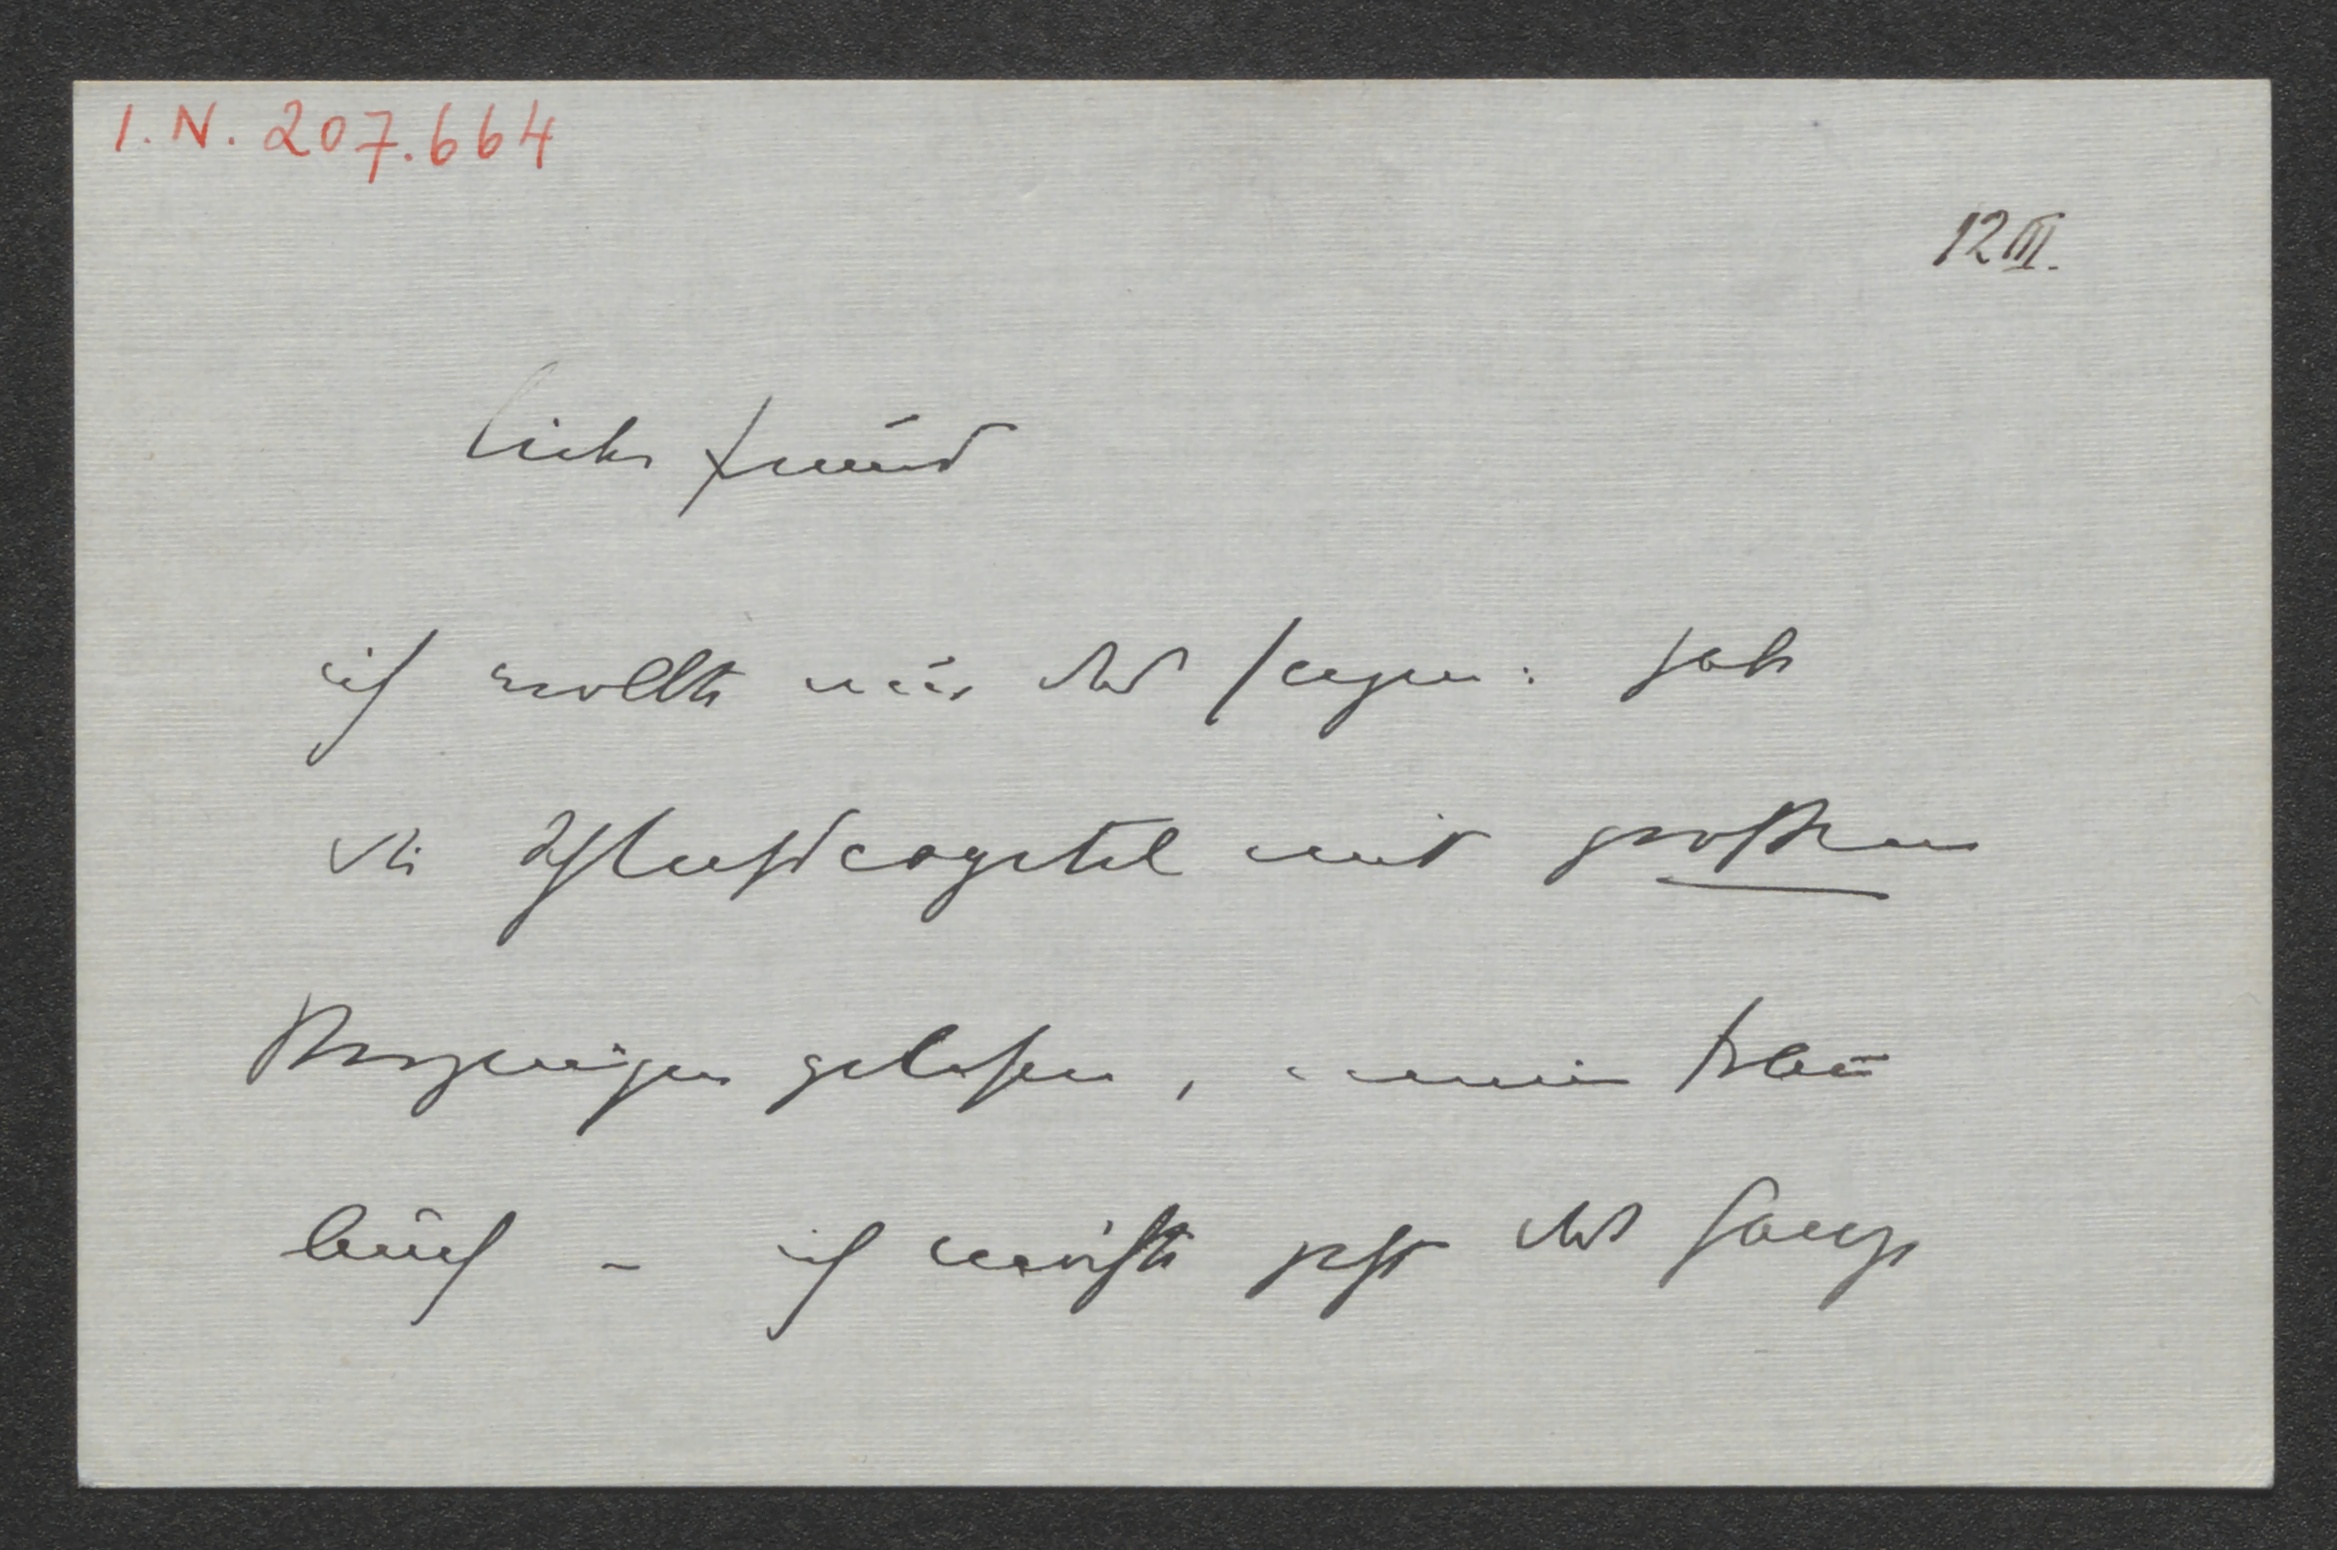 I.N. 207.664
12 III.
lieber Freund
ich wollte nur das sagen: habe
die Schlusscapitel mit großem
Vergnügen gelesen, meine Frau
auch – ich möchte jetzt das Ganze